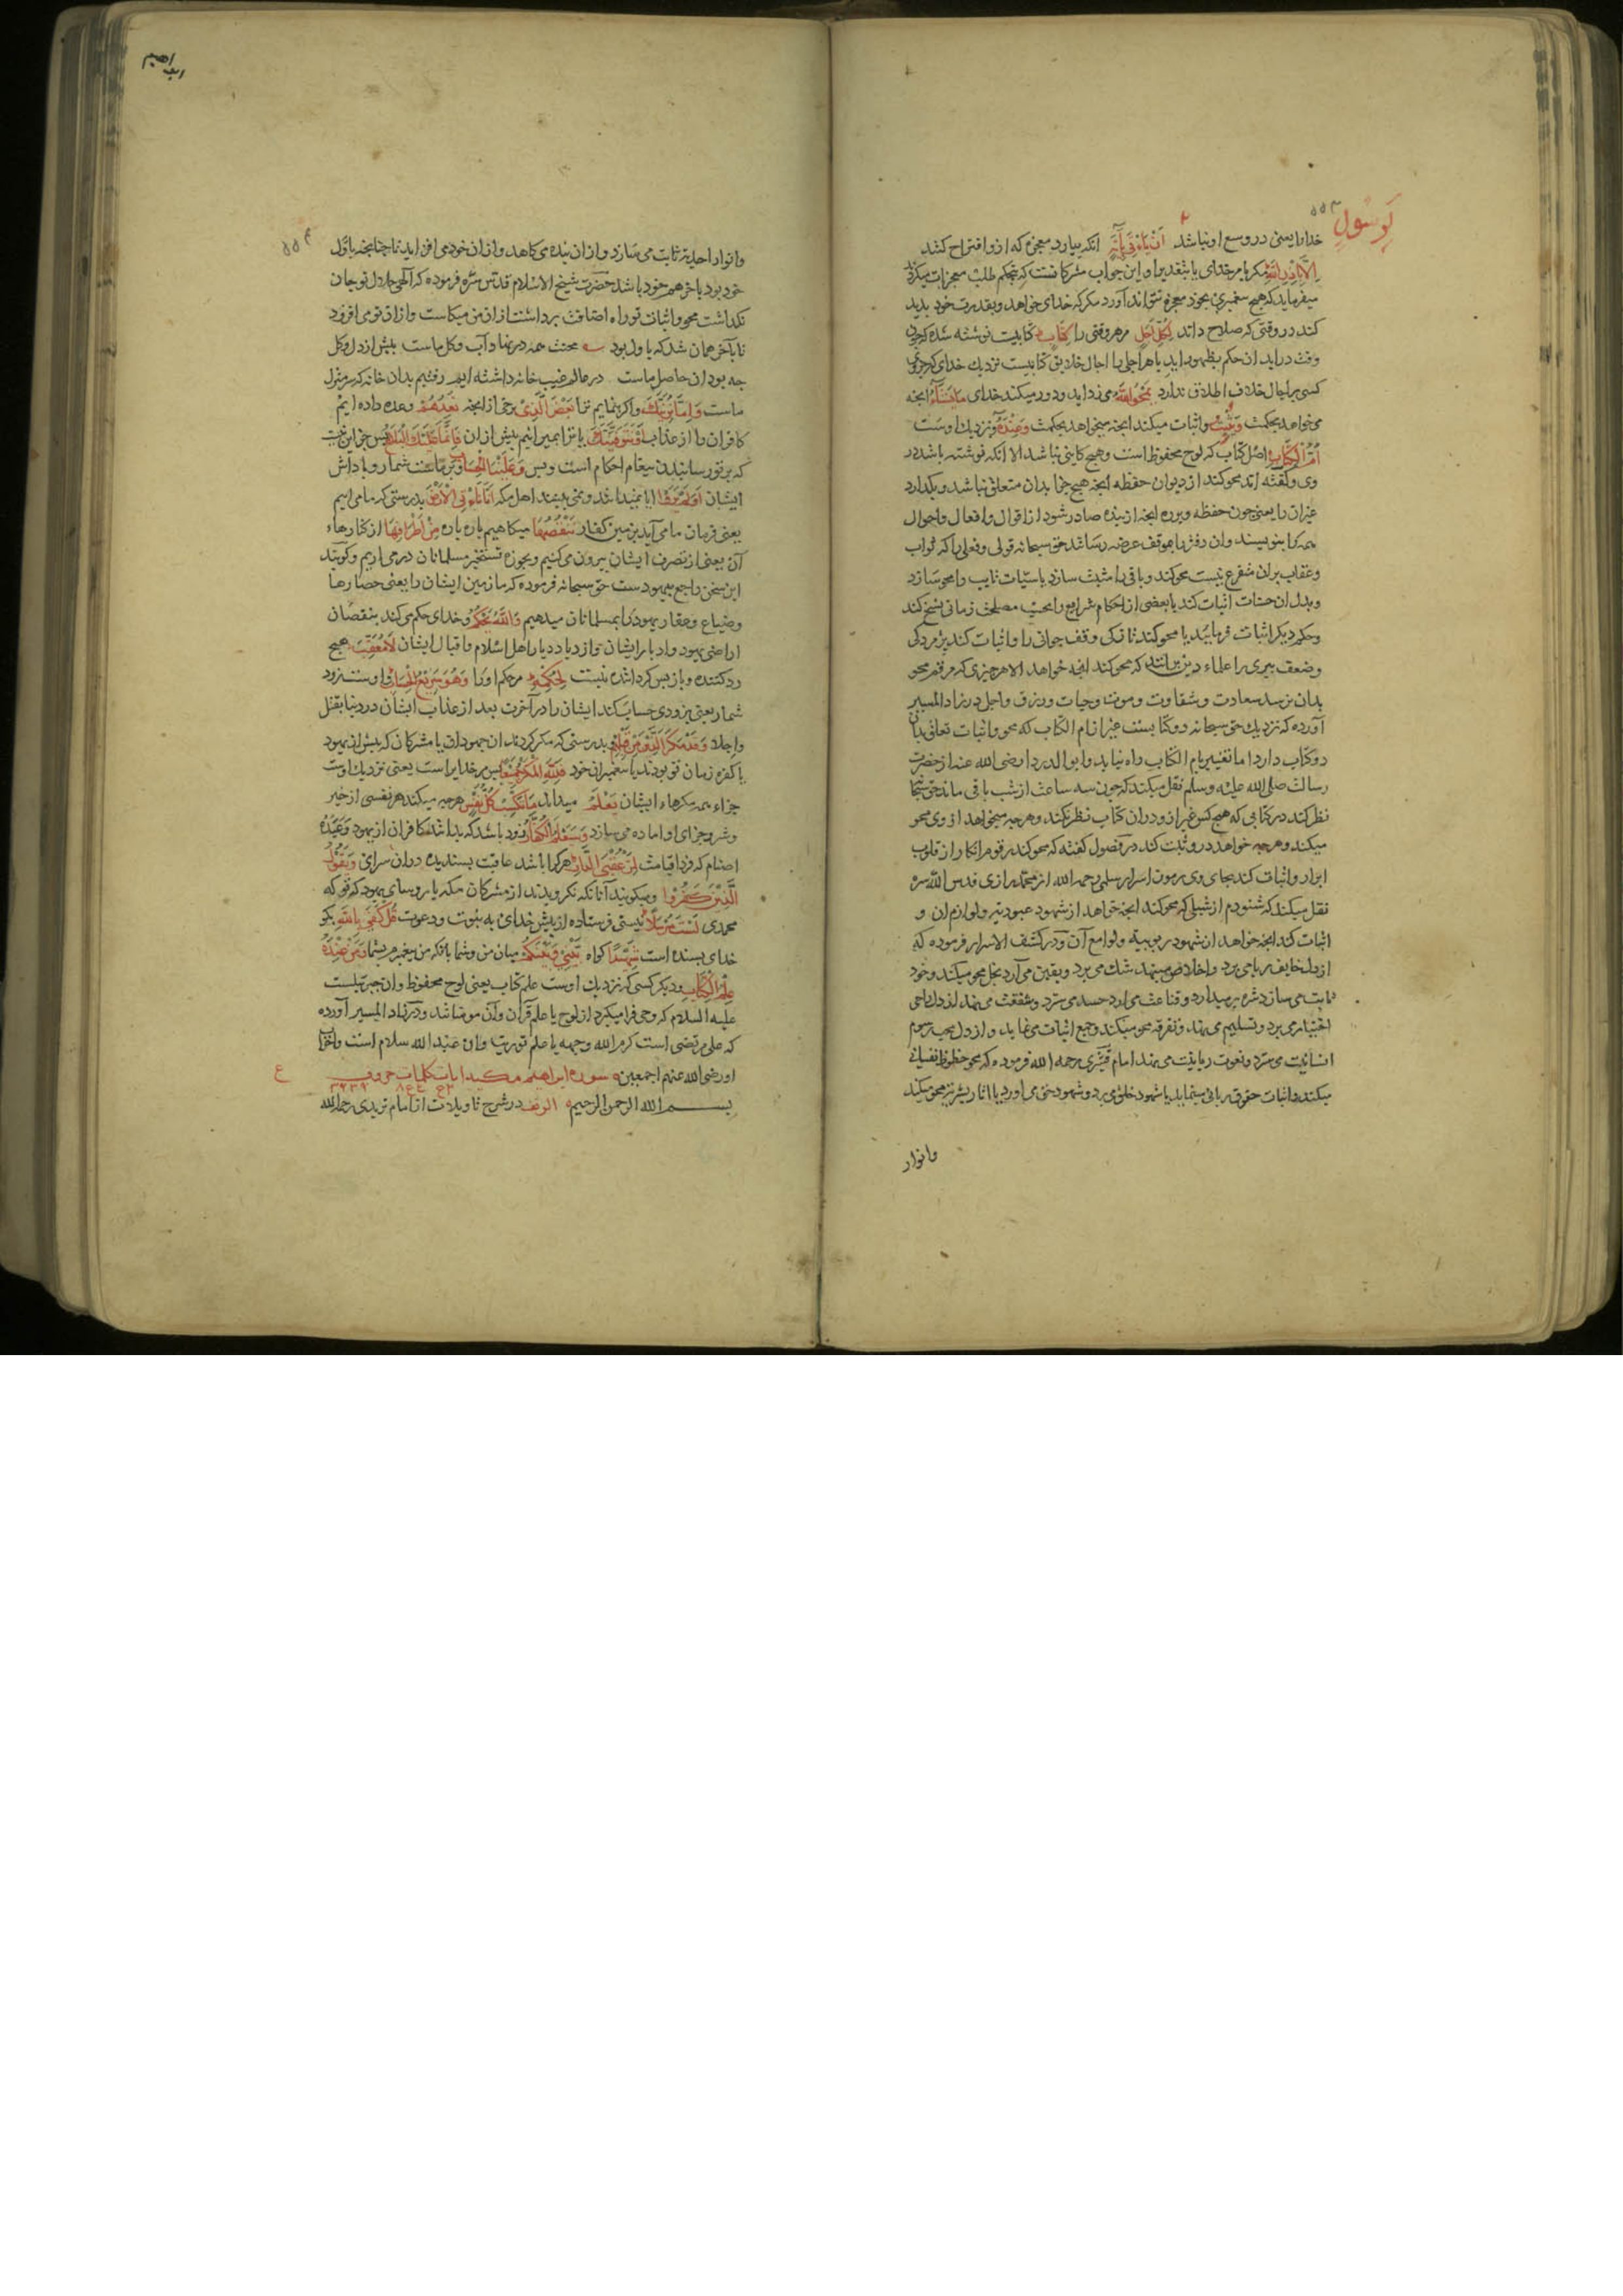 لرسول
خدا را یعنی در وسع او نباشد اَنْ یَأْتِیَ بِآیَةٍ انکه بیارد معجزه که ازو اقتراح کنند
اِلَّا بِاِذْنِ اللّٰهِ مکر بامر خدای یا بتقدیر او این جواب مشرکانست که بتحکم طلب معجزات میکردند
میفرماید که هیچ پیغمبری بخود معجزه نتواند آورد مکر که خدای خواهد و بقدرت خود پدید
کند در وقتی که صلاح داند لِکُلِّ اَجَلٍ مر هر وقتی را کِتَابٌ کتابیست نوشته شده که چون
وقت دراید ان حکم بظهور اید یا هر اجلی را اجال خلایق کتابیست نزدیك خدای که جز وی
کسی بر اجال خلایق اطلاق ندارد یَمْحُوا اللّٰهُ می زداید و دور میکند خدای مَا یَشَاءُ انچه
میخواهد بحکمت وَیُثْبِتُ و اثبات میکند انچه میخواهد بحکمت وَعِنْدَهُ و نزدیك اوست
اُمُّ الْکِتَابِ اصل کتاب که لوح محفوظ است و هیچ کاینی نباشد الا انکه نوشته باشد در
وی و کفته اند محو کند از دیوان حفظه انچه هیچ جزا بدان متعلق نباشد و بکذارد
غیران را یعنی چون حفظه ویرره انچه از بنده صادر شود از اقوال و افعال و احوال
همه را بنویسند و ان دفتر را بموقف عرض رسانند حق سبحانه قولی و فعلی را که ثواب
و عقاب بران متفرع نیست محو کند و باقی را مثبت سازد یا سیّات تایب را محو سازد
و بدل ان حسنات اثبات کند یا بعضی از احکام شرایع را بحسب مصلحت زمانی نسخ کند
و حکم دیکر اثبات فرماید یا محو کند نازکی وقت جوانی را و اثبات کند پژمردکی
و ضعف پیری را علماء دین برانند که محو کند انچه خواهد الا هر چیزی که رقم محو
بدان نرسد سعادت و شقاوت و موت و حیات و رزق و اجل در زاد المسیر
آورده که نزدیك حق سبحانه دو کتابست غیر از ام الکتاب که محو و اثبات تعلق بدان
دو کتاب دارد اما تغییر بام الکتاب راه نیابد و ابو الدردا رضی الله عنه از حضرت
رسالت صلی الله علیه وسلم نقل میکند که چون سه ساعت از شب باقی ماند حق سبحانه
نظر کند در کتابی که هیچ کس غیر ازو دران کتاب نظر نکند و هر چه میخواهد از وی محو
میکند و هر چه خواهد درو ثبت کند در فصول کفته که محو کند رقوم انکار از قلوب
ابرار و اثبات کند بجای وی رموز اسرار سلمی رحمه الله از محمد رازی قدس الله سره
نقل میکند که شنودم از شبلی که محو کند انچه خواهد از شهود عبودیة و لوازم ان و
اثبات کند انچه خواهد ان شهود ربوبیة و لوامع آن و در کشف الاسرار فرموده که
از دل خایف ریا می برد و اخلاص مینهد شك می برد و یقین می آرد بخل محو میکند و جود
ثابت می سازد شره بر میدارد و قناعت می ارد حسد می سترد و شفقت می نهد از دل راجی
اختیار می برد و تسلیم می نهد و تفرقه محو میکند و جمع اثبات می نماید و از دل محب رسوم
انسانیت می سترد و نعوت ربانیت می نهد امام قشیری رحمه الله فرموده که محو حظوظ نفسانی
میکند و اثبات حقوق ربانی مینماید یا شهود خلق می برد و شهود حق می اورد یا اثار بشریت محو میکند
وانوار
ابراهیم
و انوار احدیة ثابت می سازد و از ان بنده می کاهد و از ان خود می افزاید تا چنانچه باوّل
خود بود باخر هم خود باشد حضرت شیخ الاسلام قدّس سرّه فرموده که آلهی جلال تو جان
نکذاشت محو و اثبات تو راه اضافت برداشت از ان من میکاست و از ان تو می افزود
تا باخر همان شد که باول بود محنت همه در نهاد آب و کل ماست پیش از دل و کل
چه بود ان حاصل ماست در عالم غیب خانه داشته ایم رفتیم بدان خانه که سر منزل
ماست وَاِمَّا نُرِیَنَّكَ و اکر بنماییم ترا بَعْضَ الَّذِی برخی از انچه نَعِدُهُمْ وعده داده ایم
کافران را از عذاب اَوْ نَتَوَفَّیَنَّكَ یا ترا بمیرانیم پیش از ان فَاِنَّمَا عَلَیْكَ الْبَلَاغُ پس جز این نیست
که بر تو رسانیدن پیغام احکام است و بس وَعَلَیْنَا الْحِسَابُ و بر ماست شمار و پاداش
ایشان اَوَلَمْ یَرَوْا ایا نمیدانند و نمی بینند اهل مکه اَنَّا نَأْتِی الْاَرْضَ بدرستی که ما می اییم
یعنی فرمان ما می آید بزمین کفار نَنْقُصُهَا میکاهیم پاره پاره مِنْ اَطْرَافِهَا از کنارهاء
آن یعنی از تصرف ایشان بیرون می کنیم و بحوزه تسخیر مسلمانان در می اریم و کویند
این سخن راجع بیهودست حق سبحانه فرموده که ما زمین ایشان را یعنی حصارها
و ضیاع و عقار یهود را بمسلمانان میدهیم وَاللّٰهُ یَحْکُمُ و خدای حکم می کند بنقصان
اراضی یهود و ادبار ایشان و ازدیاد دیار اهل اسلام و اقبال ایشان لَا مُعَقِّبَ هیچ
رد کننده و باز پس کرداننده نیست لِحُکْمِهِ مر حکم او را وَهُوَ سَرِیعُ الْحِسَابِ و اوست زود
شمار یعنی بزودی حساب کند ایشان را در آخرت بعد از عذاب ایشان در دنیا بقتل
و اجلا وَقَدْ مَکَرَ الَّذِینَ مِنْ قَبْلِهِمْ بدرستی که مکر کردند ان جهودان یا مشرکان که پیش از یهود
یا کفره زمان تو بودند با پیغمبران خود فَلِلّٰهِ الْمَکْرُ جَمِیعًا پس مر خدایراست یعنی نزدیك اوست
جزاء همه مکرهاء ایشان یَعْلَمُ میداند مَا تَکْسِبُ کُلُّ نَفْسٍ هر چه میکند هر نفسی از خیر
و شر و جزای او اماده می سازد وَسَیَعْلَمُ الْکُفَّارُ زود باشد که بدانند کافران از یهود و عبده
اصنام که فردا قیامت لِمَنْ عُقْبَی الدَّارِ هر کرا باشد عاقبت پسندیده دران سرای وَیَقُولُ
الَّذِینَ کَفَرُوا و میکویند آنانکه نکرویدند از مشرکان مکه یا روسای یهود که تو که
محمدی لَسْتَ مُرْسَلًا نیستی فرستاده از پیش خدای به نبوت و دعوت قُلْ کَفَی بِاللّٰهِ بکو
خدای بسنده است شَهِیدًا کواه بَیْنِی وَبَیْنَکُمْ میان من و شما بانکه من پیغمبرم بشما وَمَنْ عِنْدَهُ
عِلْمُ الْکِتَابِ و دیکر کسی که نزدیك اوست علم کتاب یعنی لوح محفوظ و ان جبرئیلست
علیه السلام که وحی فرا میکیرد از لوح یا علم قرآن و آن مومنانند و در زاد المسیر آورده
که علی مرتضی است کرم الله وجهه یا علم توریت و ان عبد الله سلام است و اخوا
او رضی الله عنهم اجمعین سوره ابراهیم مکیه ایات کلمات حروف
بسم الله الرحمن الرحیم الر در شرح تاویلات از امام تریدی رحمه الله